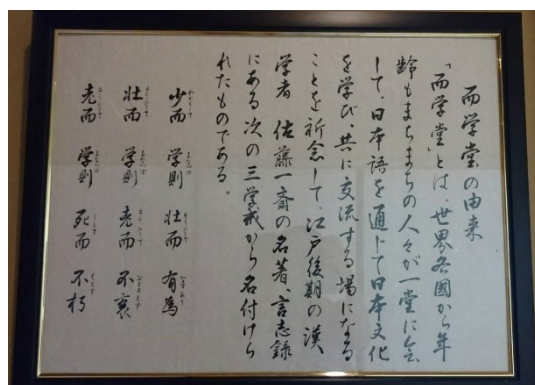 而学堂の由来
「而学堂」とは、世界各國から年
齢もまちまちの人々が一堂に会
して、日本語を通じて日本文化
を学び、共に交流する場になる
ことを祈念して、江戸後期の漢
学者 佐藤一斎の名著、言志録
にある次の三学戒から名付けら
れたものである。
少而 学則 壮而 有為
壮而 学則 老而 不衰
老而 学則 死而 不朽